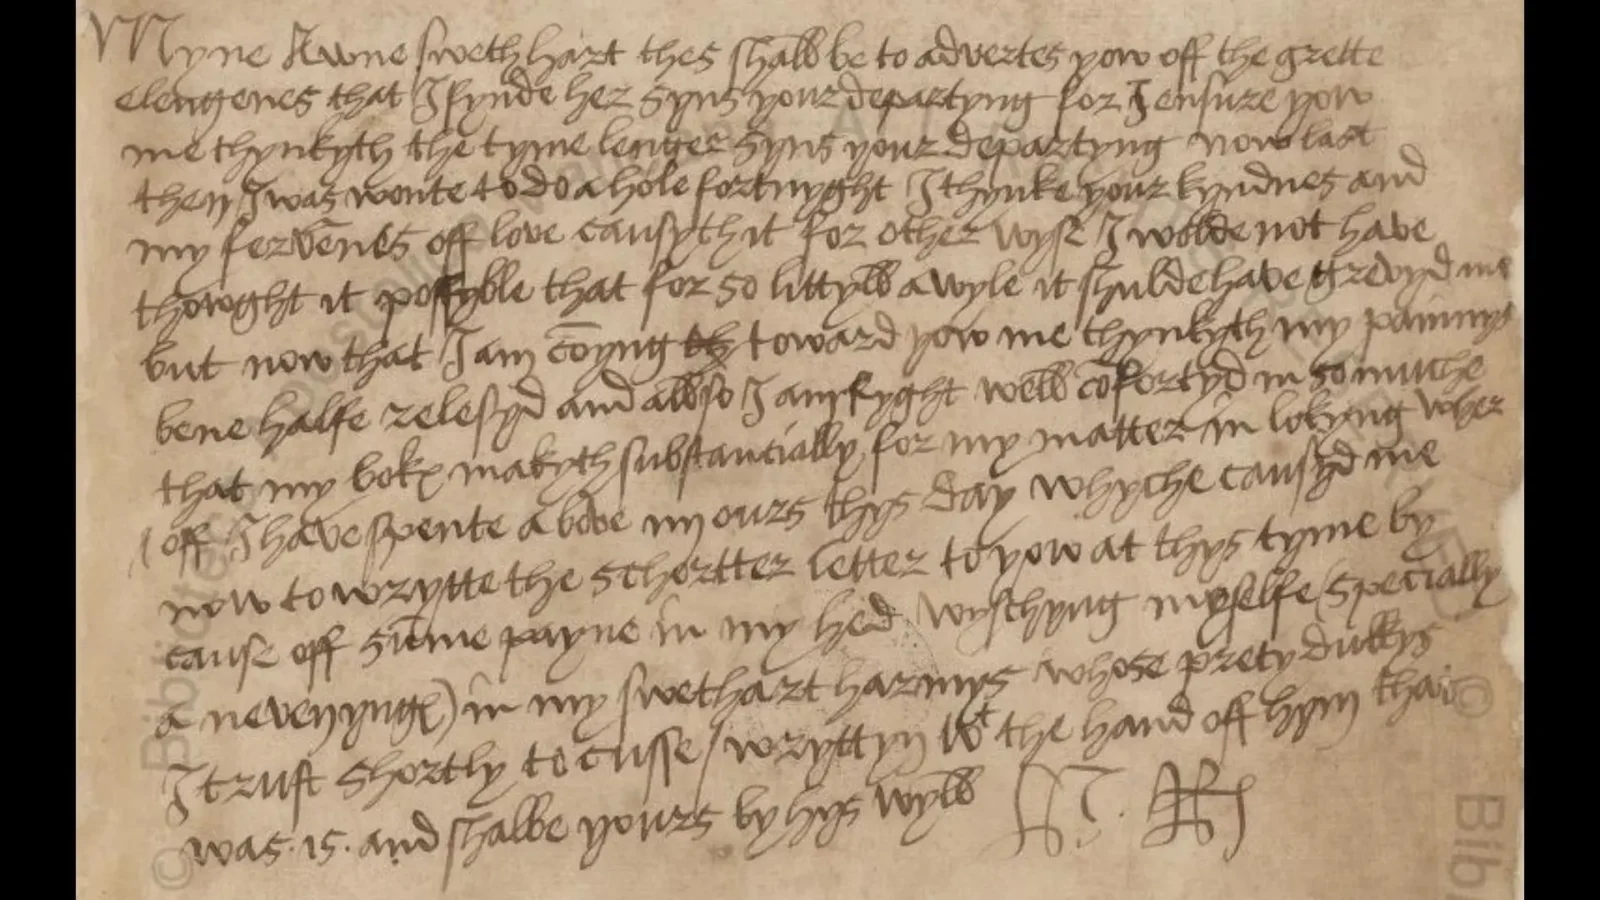 Myne Awne swethhart thes shall be to advertes yow off the grette
elengenes that I fynde her syns your departyng for I ensure yow
me thynkyth the tyme lenger syns your departyng now last
then I was wonte to do a hole fortnyght I thynke your kyndnes and
my fervēnes off love causyth it for other wyse I wolde not have
thowght it possyble that for so littyll a wyle it shulde have grevyd me
but now that I am cōyng toward yow me thynkyth my painnys
bene halfe relesyd and allso I am ryght well cōfortyd in so muche
that my boke makyth substancially for my matter in lokyng wher
off I have spente above iiij ours thys day whyche causyd me
now to wrytte the schortter letter to yow at thys tyme by
cause off sūme payne in my hed wyschyng myselfe (specially
a nevenynge) in my swethart harmys whose prety dukkys
I trust shortly to cusse / wryttyn wt the hand off hym that
was . is . and shalbe yours by hys wyll H. R
© Biblioteca Apostolica Vaticana
© Bib